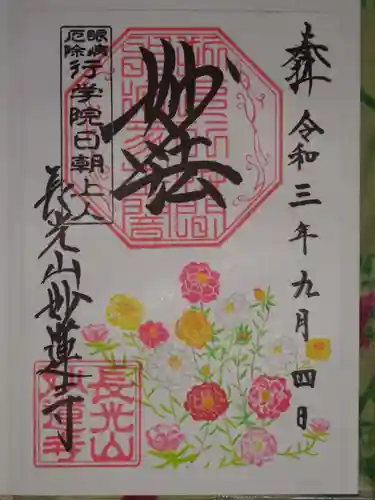 奉拝
令和三年九月四日
妙法
眼病
厄除
行学院日朝上人
長光山妙蓮寺
長光山
妙蓮寺